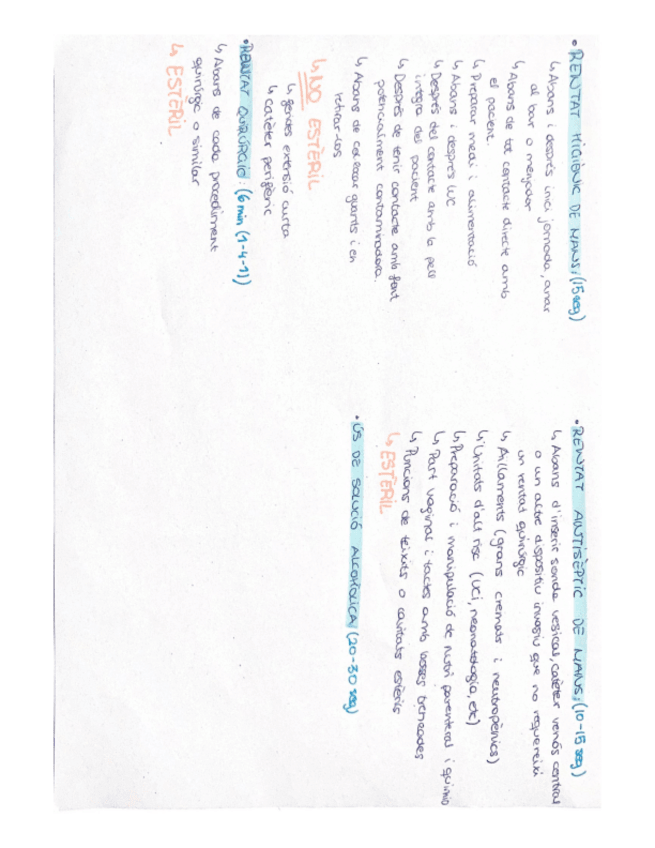 • RENTAT HIGIÈNIC DE MANS: (15 seg)
↳ Abans i després inici jornada, anar
al bar o menjador
↳ Abans de tot contacte directe amb
el pacient.
↳ Preparar medi i alimentació
↳ Abans i després WC
↳ Després del contacte amb la pell
íntegra del pacient
↳ Després de tenir contacte amb font
potencialment contaminadora.
↳ Abans de col·locar guants i en
retirar-los
↳ NO ESTÈRIL
↳ gendes extensió curta
↳ catèter perifèric
• RENTAT QUIRÚRGIC: (6 min (1-4-1))
↳ Abans de cada procediment
quirúrgic o similar
↳ ESTÈRIL
• RENTAT ANTISÈPTIC DE MANS: (10-15 seg)
↳ Abans d'inserir sonda vesical, catèter venós central
o un altre dispositiu invasiu que no requereixi
un rentat quirúrgic
↳ Aïllaments (grans cremats i neutropènics)
↳ Unitats d'alt risc (UCI, neonatologia, etc)
↳ Preparació i manipulació de nutri parenteral i quimio
↳ Part vaginal i tactes amb bosses trencades
↳ Puncions de teixits o cavitats estèrils
↳ ESTÈRIL
• ÚS DE SOLUCIÓ ALCOHÒLICA (20-30 seg)